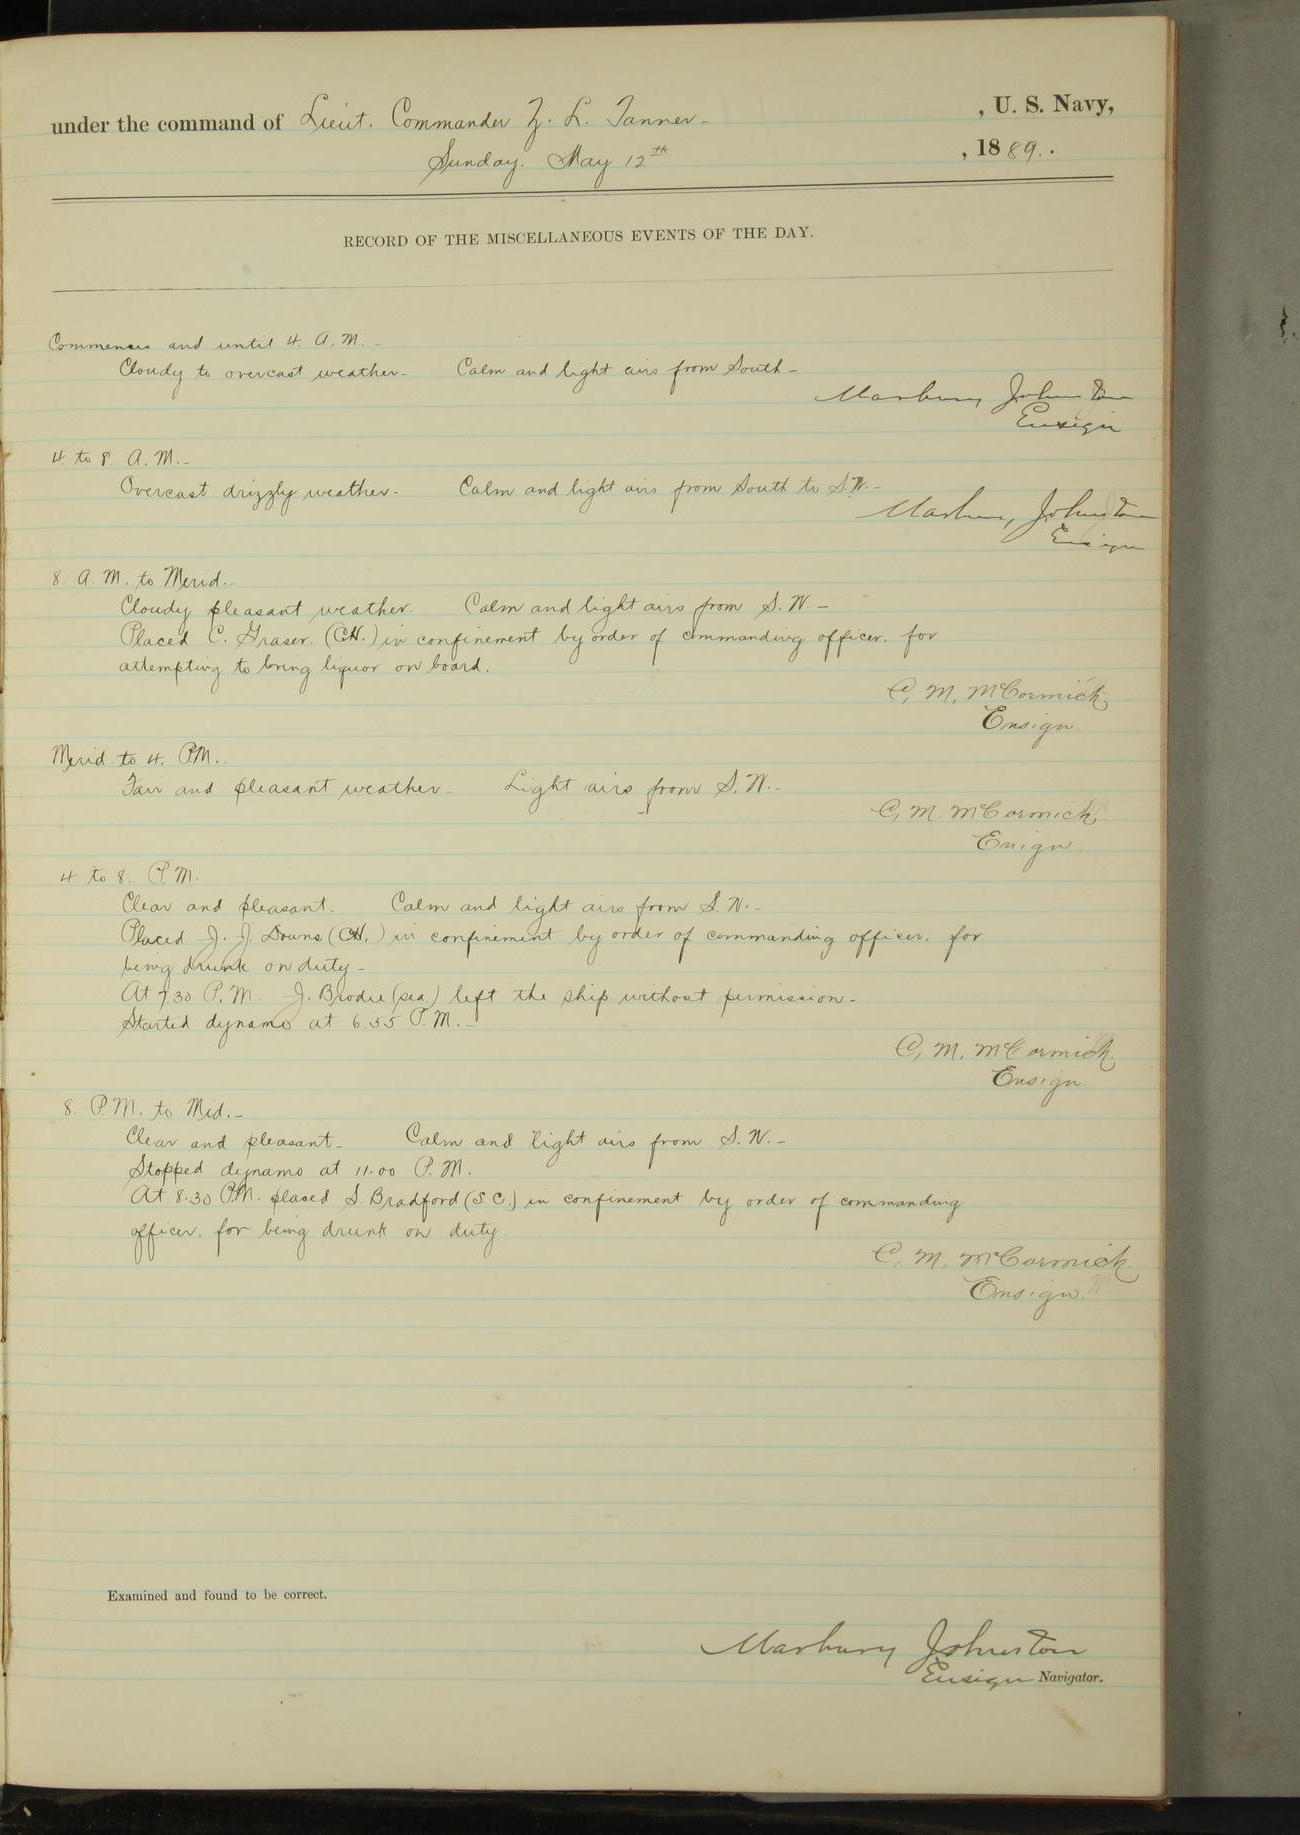 under the command of Lieut. Commander Z. L. Tanner , U. S. Navy,
Sunday. May 12th , 1889.
RECORD OF THE MISCELLANEOUS EVENTS OF THE DAY.
Commences and until 4. A. M.
Cloudy to overcast weather. Calm and light airs from South
Marbury Johnston
Ensign
4 to 8. A. M.
Overcast drizzly weather. Calm and light airs from South to S.W.
Marbury Johnston
Ensign
8. A. M. to Merid.
Cloudy pleasant weather. Calm and light airs from S. W.
Placed C. Fraser. (CH.) in confinement by order of commanding officer. for
attempting to bring liquor on board.
C. M. McCormick,
Ensign.
Merid. to 4. P.M.
Fair and pleasant weather. Light airs from S. W.
C. M. McCormick,
Ensign.
4 to 8. P. M.
Clear and pleasant. Calm and light airs from S. W.
Placed J. J. Downs (CH.) in confinement by order of commanding officer. for
being drunk on duty
At 7.30 P. M. J. Brodie (sea.) left the ship without permission
Started dynamo at 6.55 P. M.
C. M. McCormick.
Ensign.
8. P.M. to Mid.
Clear and pleasant Calm and light airs from S. W.
Stopped dynamo at 11.00 P. M.
At 8.30 P.M. placed S Bradford (S. C.) in confinement by order of commanding
officer. for being drunk on duty.
C. M. McCormick.
Ensign.
Examined and found to be correct.
Marbury Johnston
Ensign Navigator.